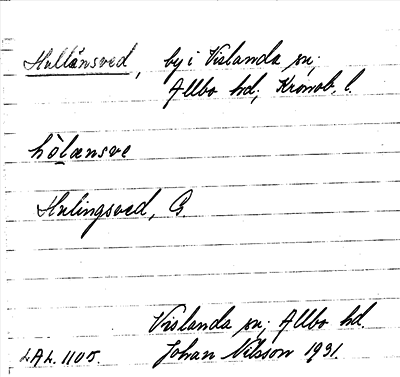 Hullänsved, by i Vislanda sn;
Allbo hd; Kronob. l.
hòlænsve
Hulingsved, G.
Vislanda sn; Allbo hd.
LAL. 1105. Johan Nilsson 1931.